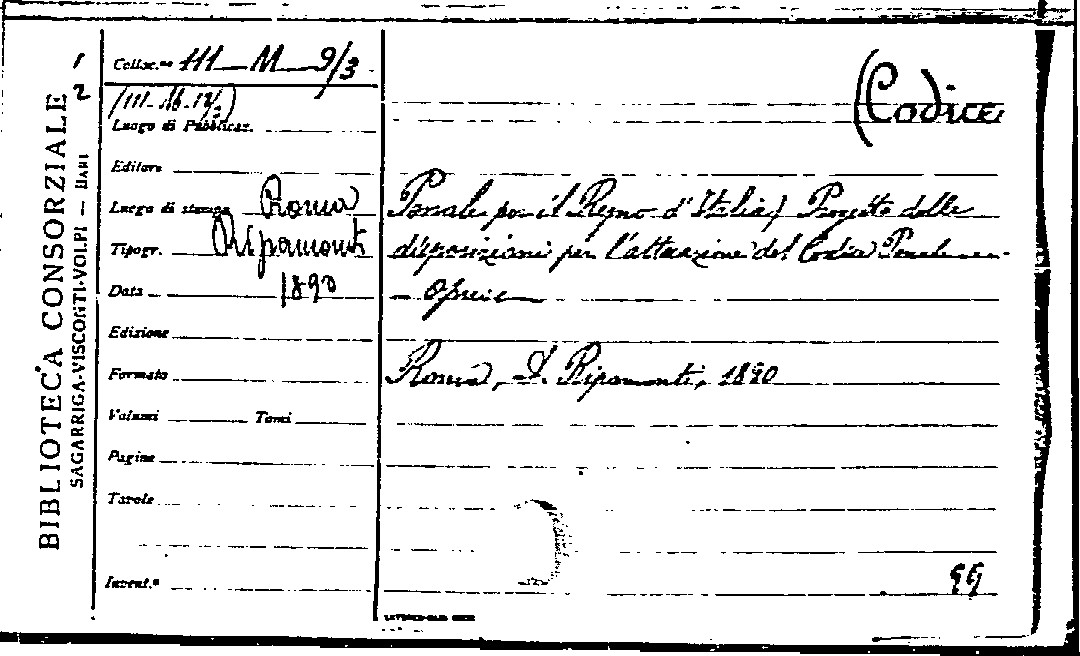 BIBLIOTECA CONSORZIALE
SAGARRIGA-VISCONTI-VOLPI — BARI
1
2
Collac.ne III M 9/3
(III-16-12/
Luogo di Pubblicaz.
Editore
Luogo di stampa Roma
Tipogr. Ripamonti
Data 1890
Edizione
Formato
Volumi Tomi
Pagine
Tavole
Invent.º
(Codice
Penale per il Regno d'Italia) Progetto delle
disposizioni per l'attuazione del Codice Penale
Roma, Ripamonti, 1890
99